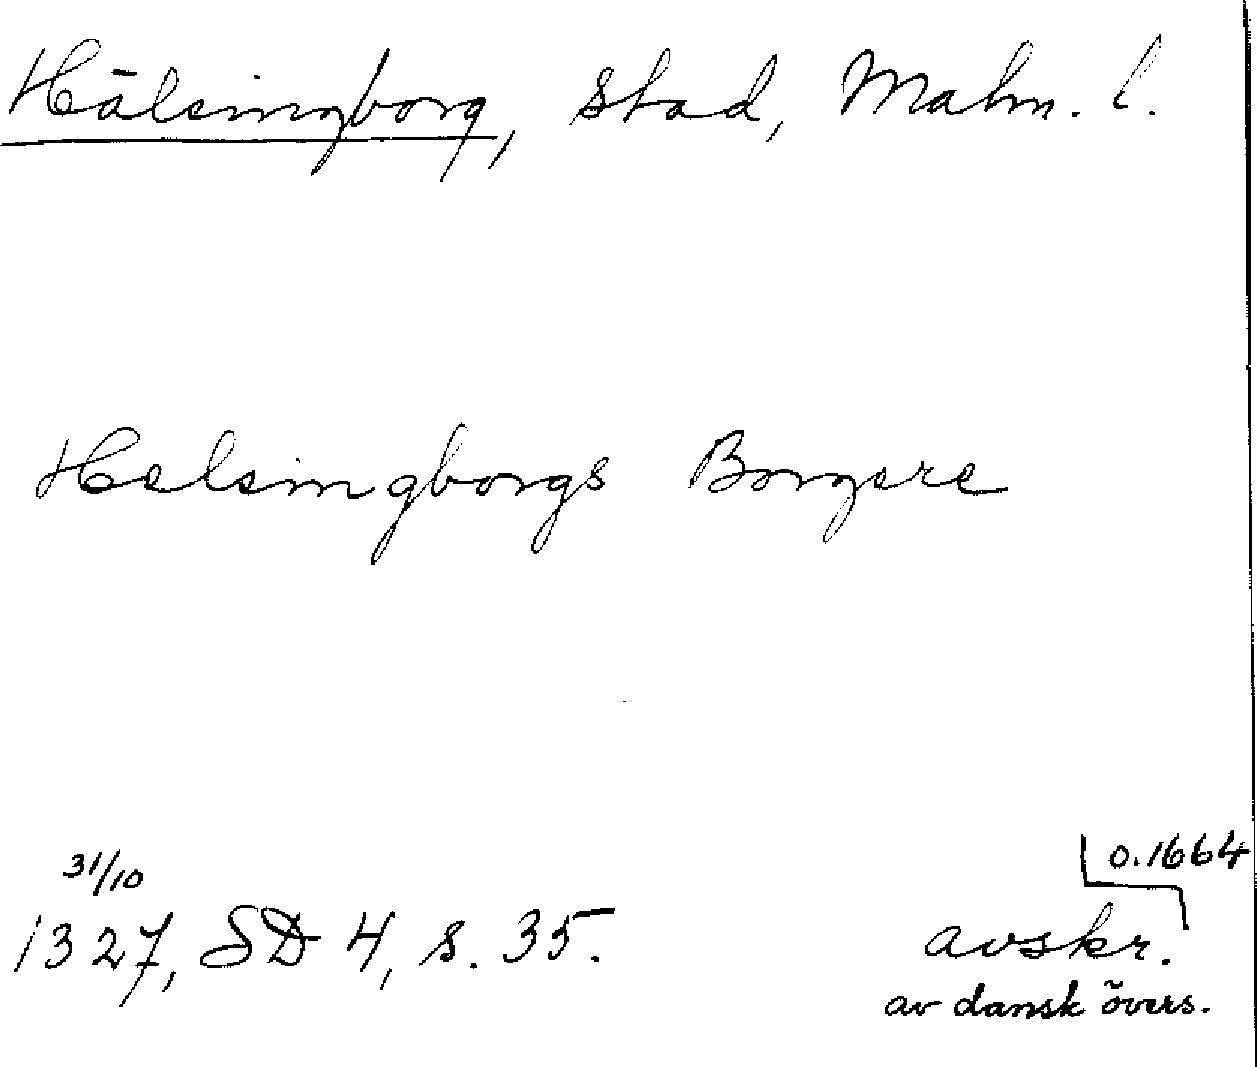 Hälsingborg, stad, Malm. l.
Helsingborgs Borgere
31/10
1327, SD 4, s. 35.
o. 1664
avskr.
av dansk övers.